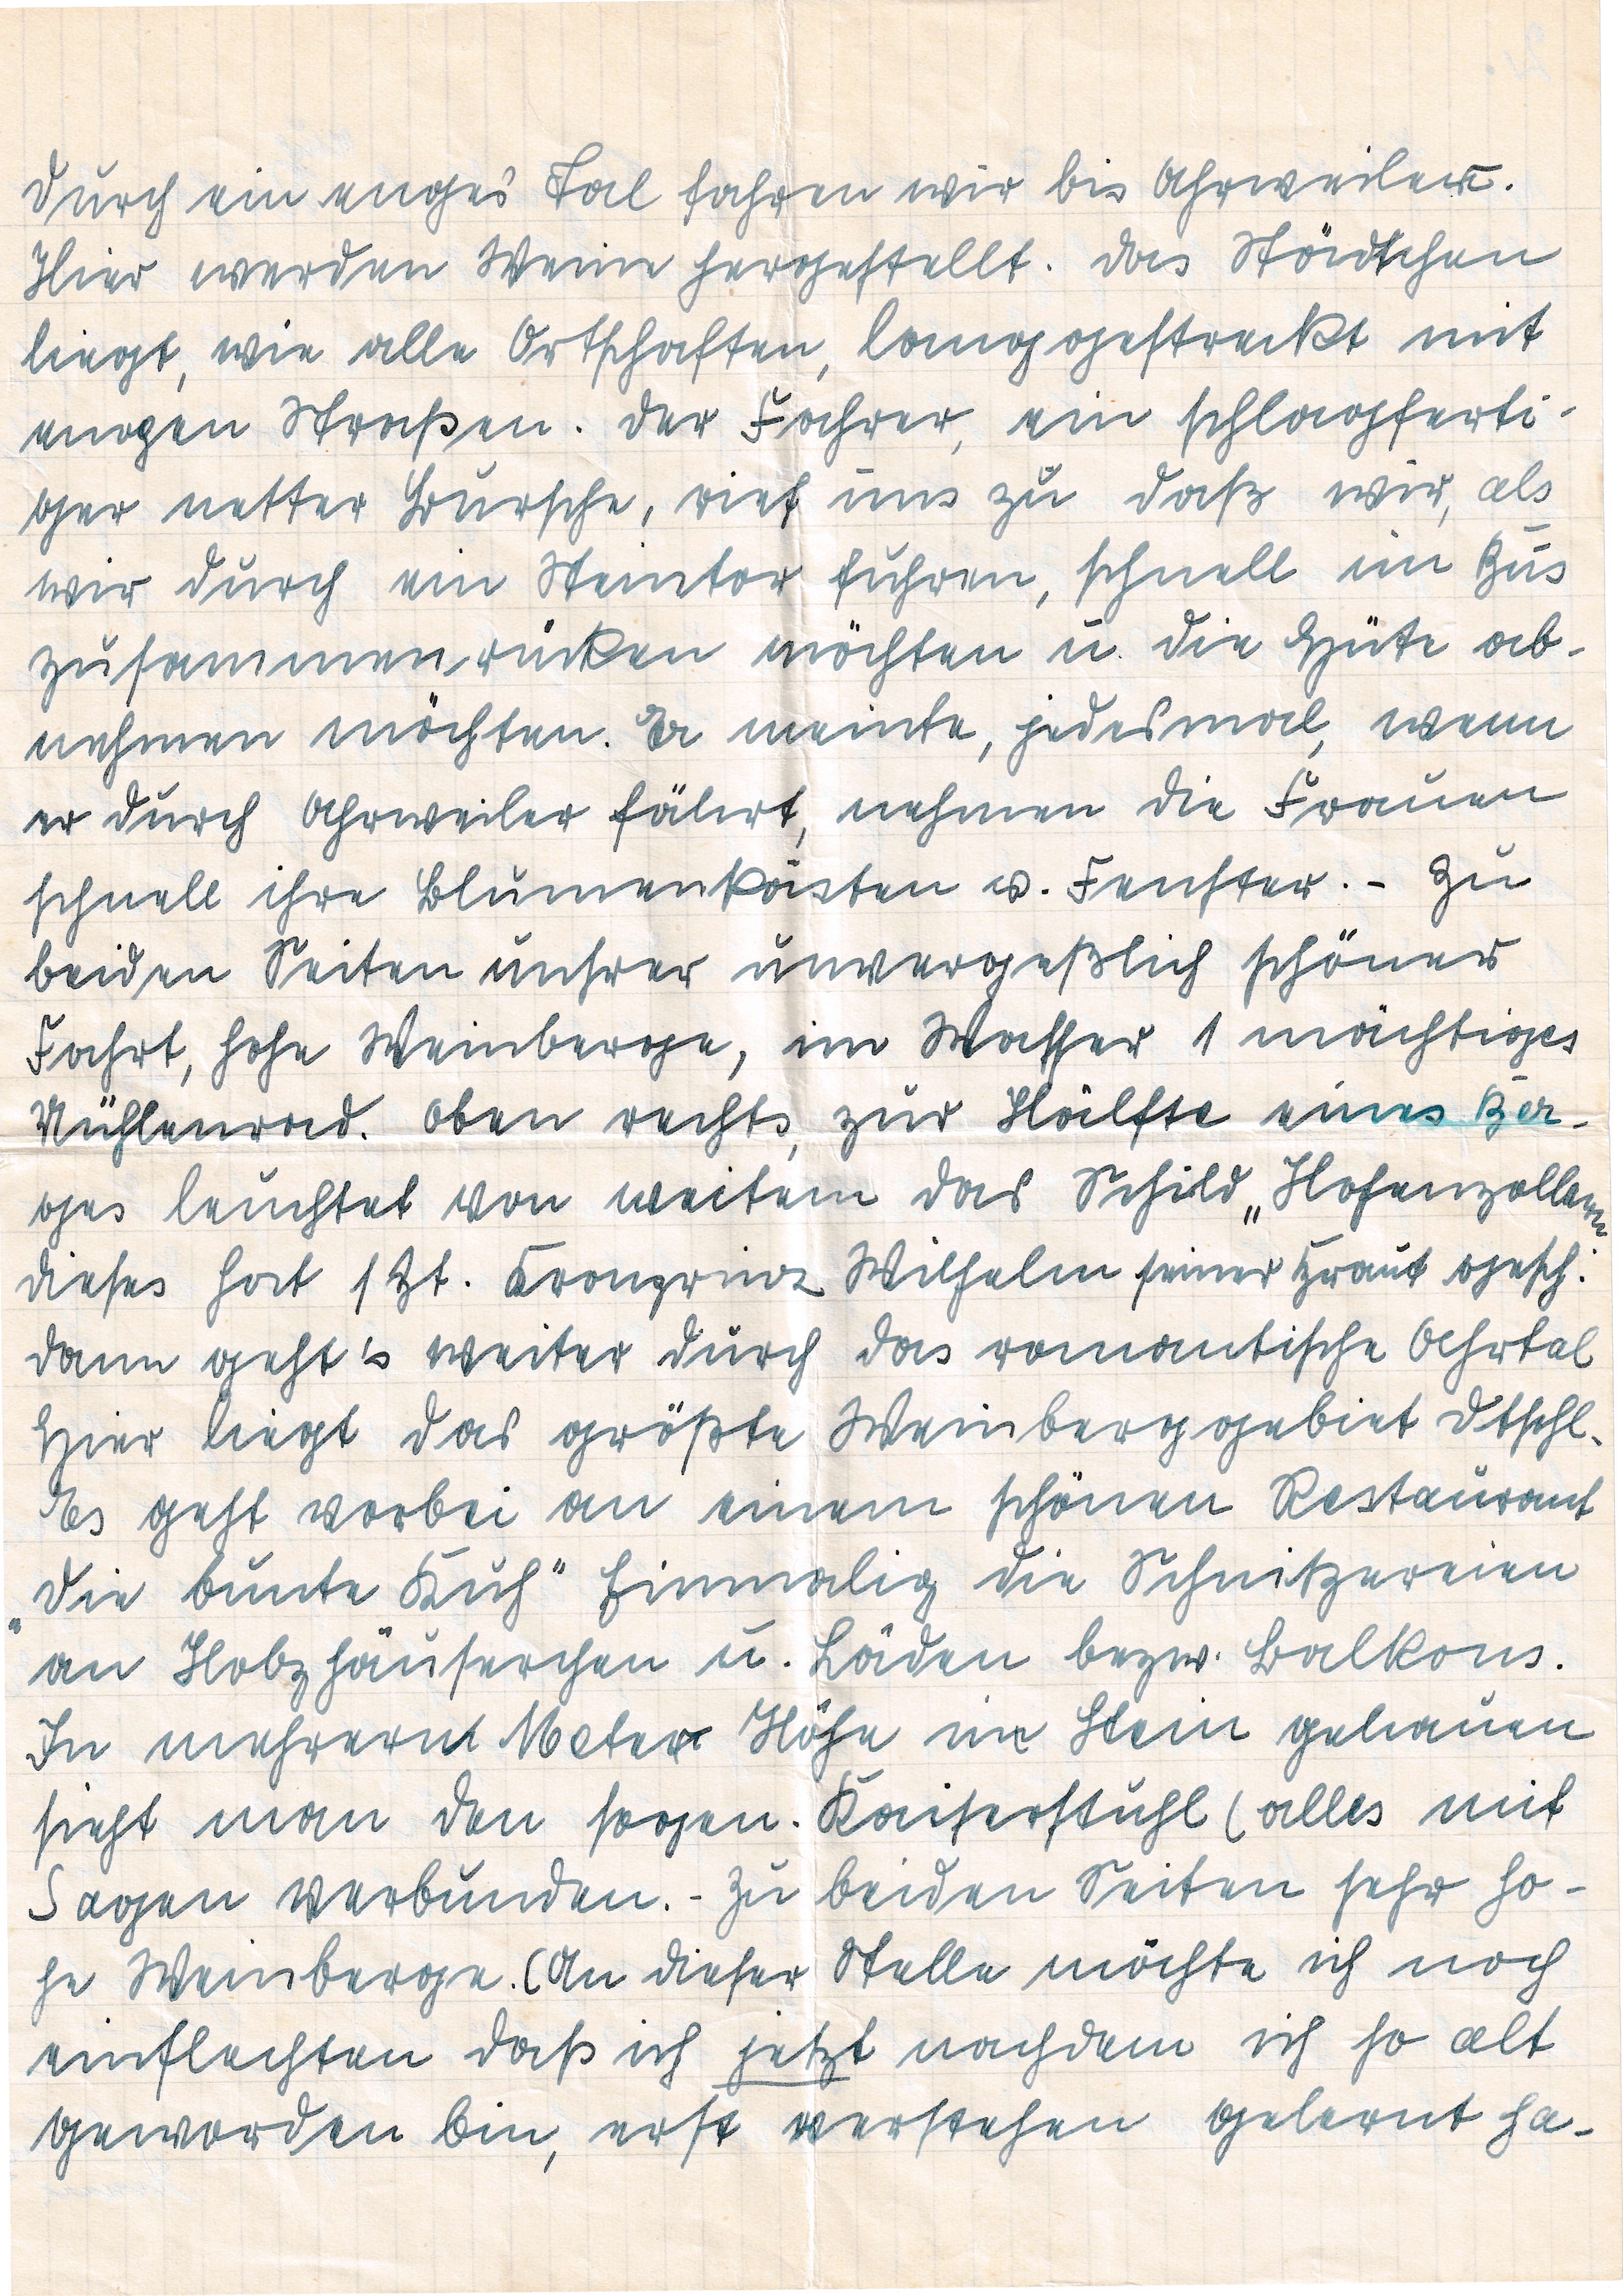 durch ein enges Tal fahren wir bis Ahrweiler.
Hier werden Weine hergestellt. Das Städtchen
liegt, wie alle Ortschaften, langgestreckt mit
engen Straßen. Der Fahrer, ein schlagferti-
ger netter Bursche, rief uns zu daß wir, als
wir durch ein Steintor fuhren, schnell im Bus
zusammenrücken möchten u. die Hüte ab-
nehmen möchten. Er meinte, jedesmal, wenn
er durch Ahrweiler fährt, nehmen die Frauen
schnell ihre Blumenkästen v. Fenster. - Zu
beiden Seiten unsrer unvergeßlich schöner
Fahrt, hohe Weinberge, im Wasser 1 mächtiges
Mühlenrad. Oben rechts, zur Hälfte eines Ber-
ges leuchtet von weitem das Schild „Hohenzollern
dieses hat s. Zt. Kronprinz Wilhelm seiner Braut gesch.
Dann geht's weiter durch das romantische Ahrtal
Hier liegt das größte Weinberggebiet Dtschl.
Es geht vorbei an einem schönen Restaurant
„Die bunte Kuh" Einmalig die Schnitzereien
an Holzhäuserchen u. Läden bezw. Balkons.
In mehrern Meter Höhe im Stein gehauen
sieht man den sogen. Kaiserstuhl (alles mit
Sagen verbunden. - Zu beiden Seiten sehr ho-
he Weinberge. (An dieser Stelle möchte ich noch
einflechten daß ich jetzt nachdem ich so alt
geworden bin, erst verstehen gelernt ha-